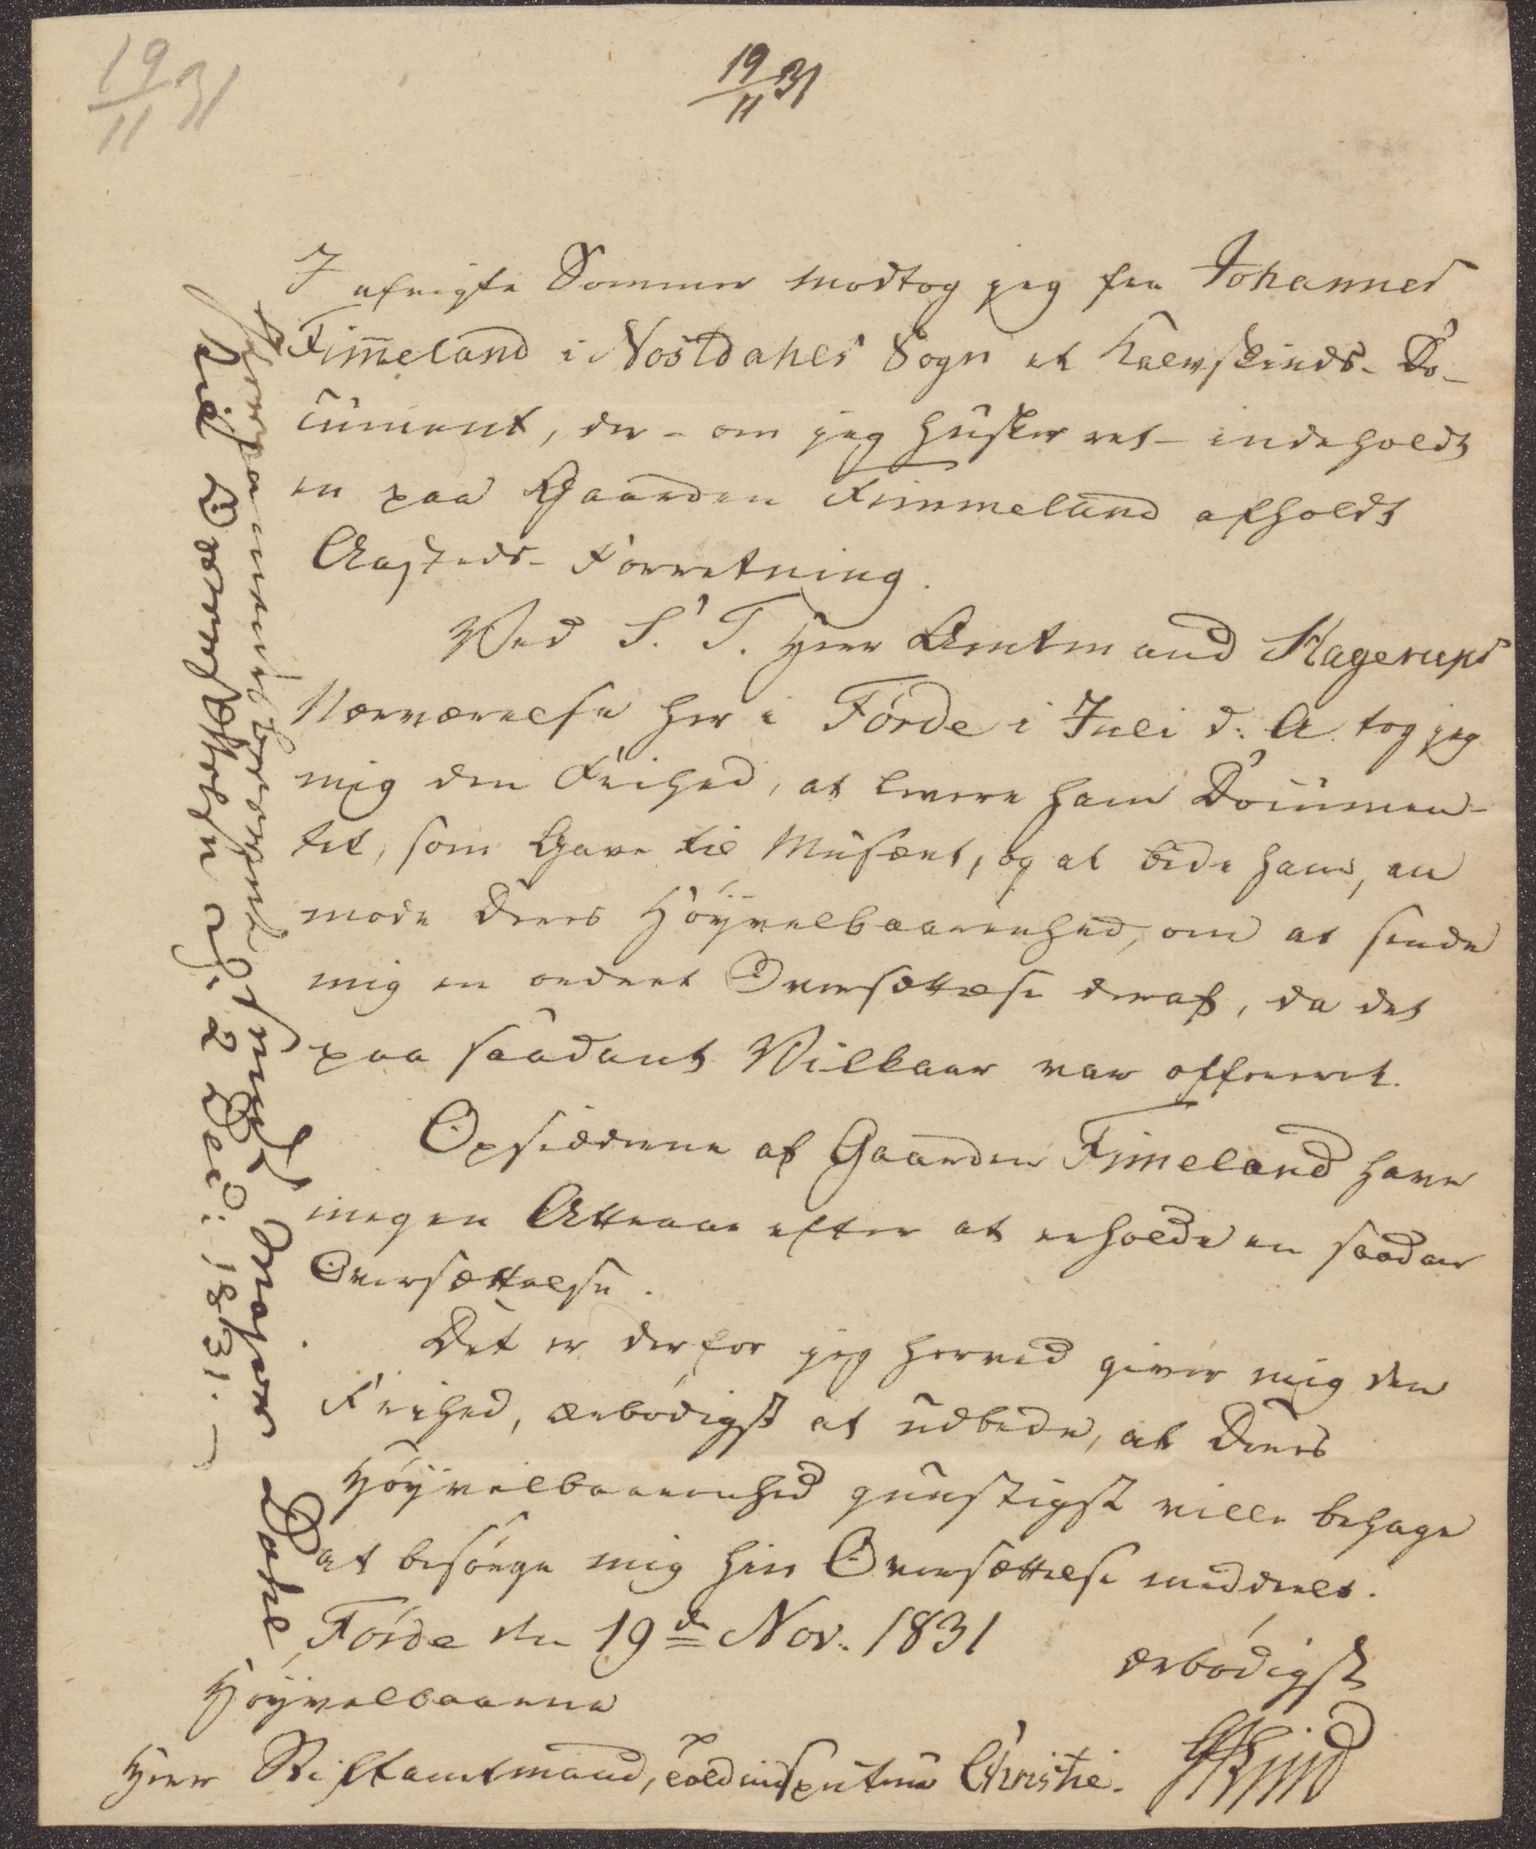 19/11 31
19/11 31
I afvigte Sommer modtog jeg fra Johannes
Fimeland i Nostdahls Sogn et Kalvskinds-Do-
cument, der - om jeg husker ret - indeholdt
en paa Gaarden Fimmeland afholdt
Aasteds-Forretning.
Ved S. T. Herr Amtmand Hagerups
Nærværelse her i Förde i Juli d: A. tog jeg
mig den Frihed, at levere ham Documen-
tet, som Gave til Musæet, og at bede ham, an
mode Deres Höÿvelbaarenhed, om at sende
mig en ordret Oversættelse deraf, da det
paa saadant Vilkaar var offereret.
Opsidderne af Gaarden Fimeland have
megen Attraae efter at erholde en saadan
Oversættelse.
Det er derfor jeg herved giver mig den
Frihed, ærbödigst at udbede, at Deres
Höÿvelbaarenhed gunstigst ville behage
at besörge mig hin Oversættelse meddeelt.
Förde den 19de Nov. 1831
ærbödigst
Höÿvelbaarne
Herr Stiftamtmand, Toldinspecteur Christie.
Dahl
2 Dec: 1831.